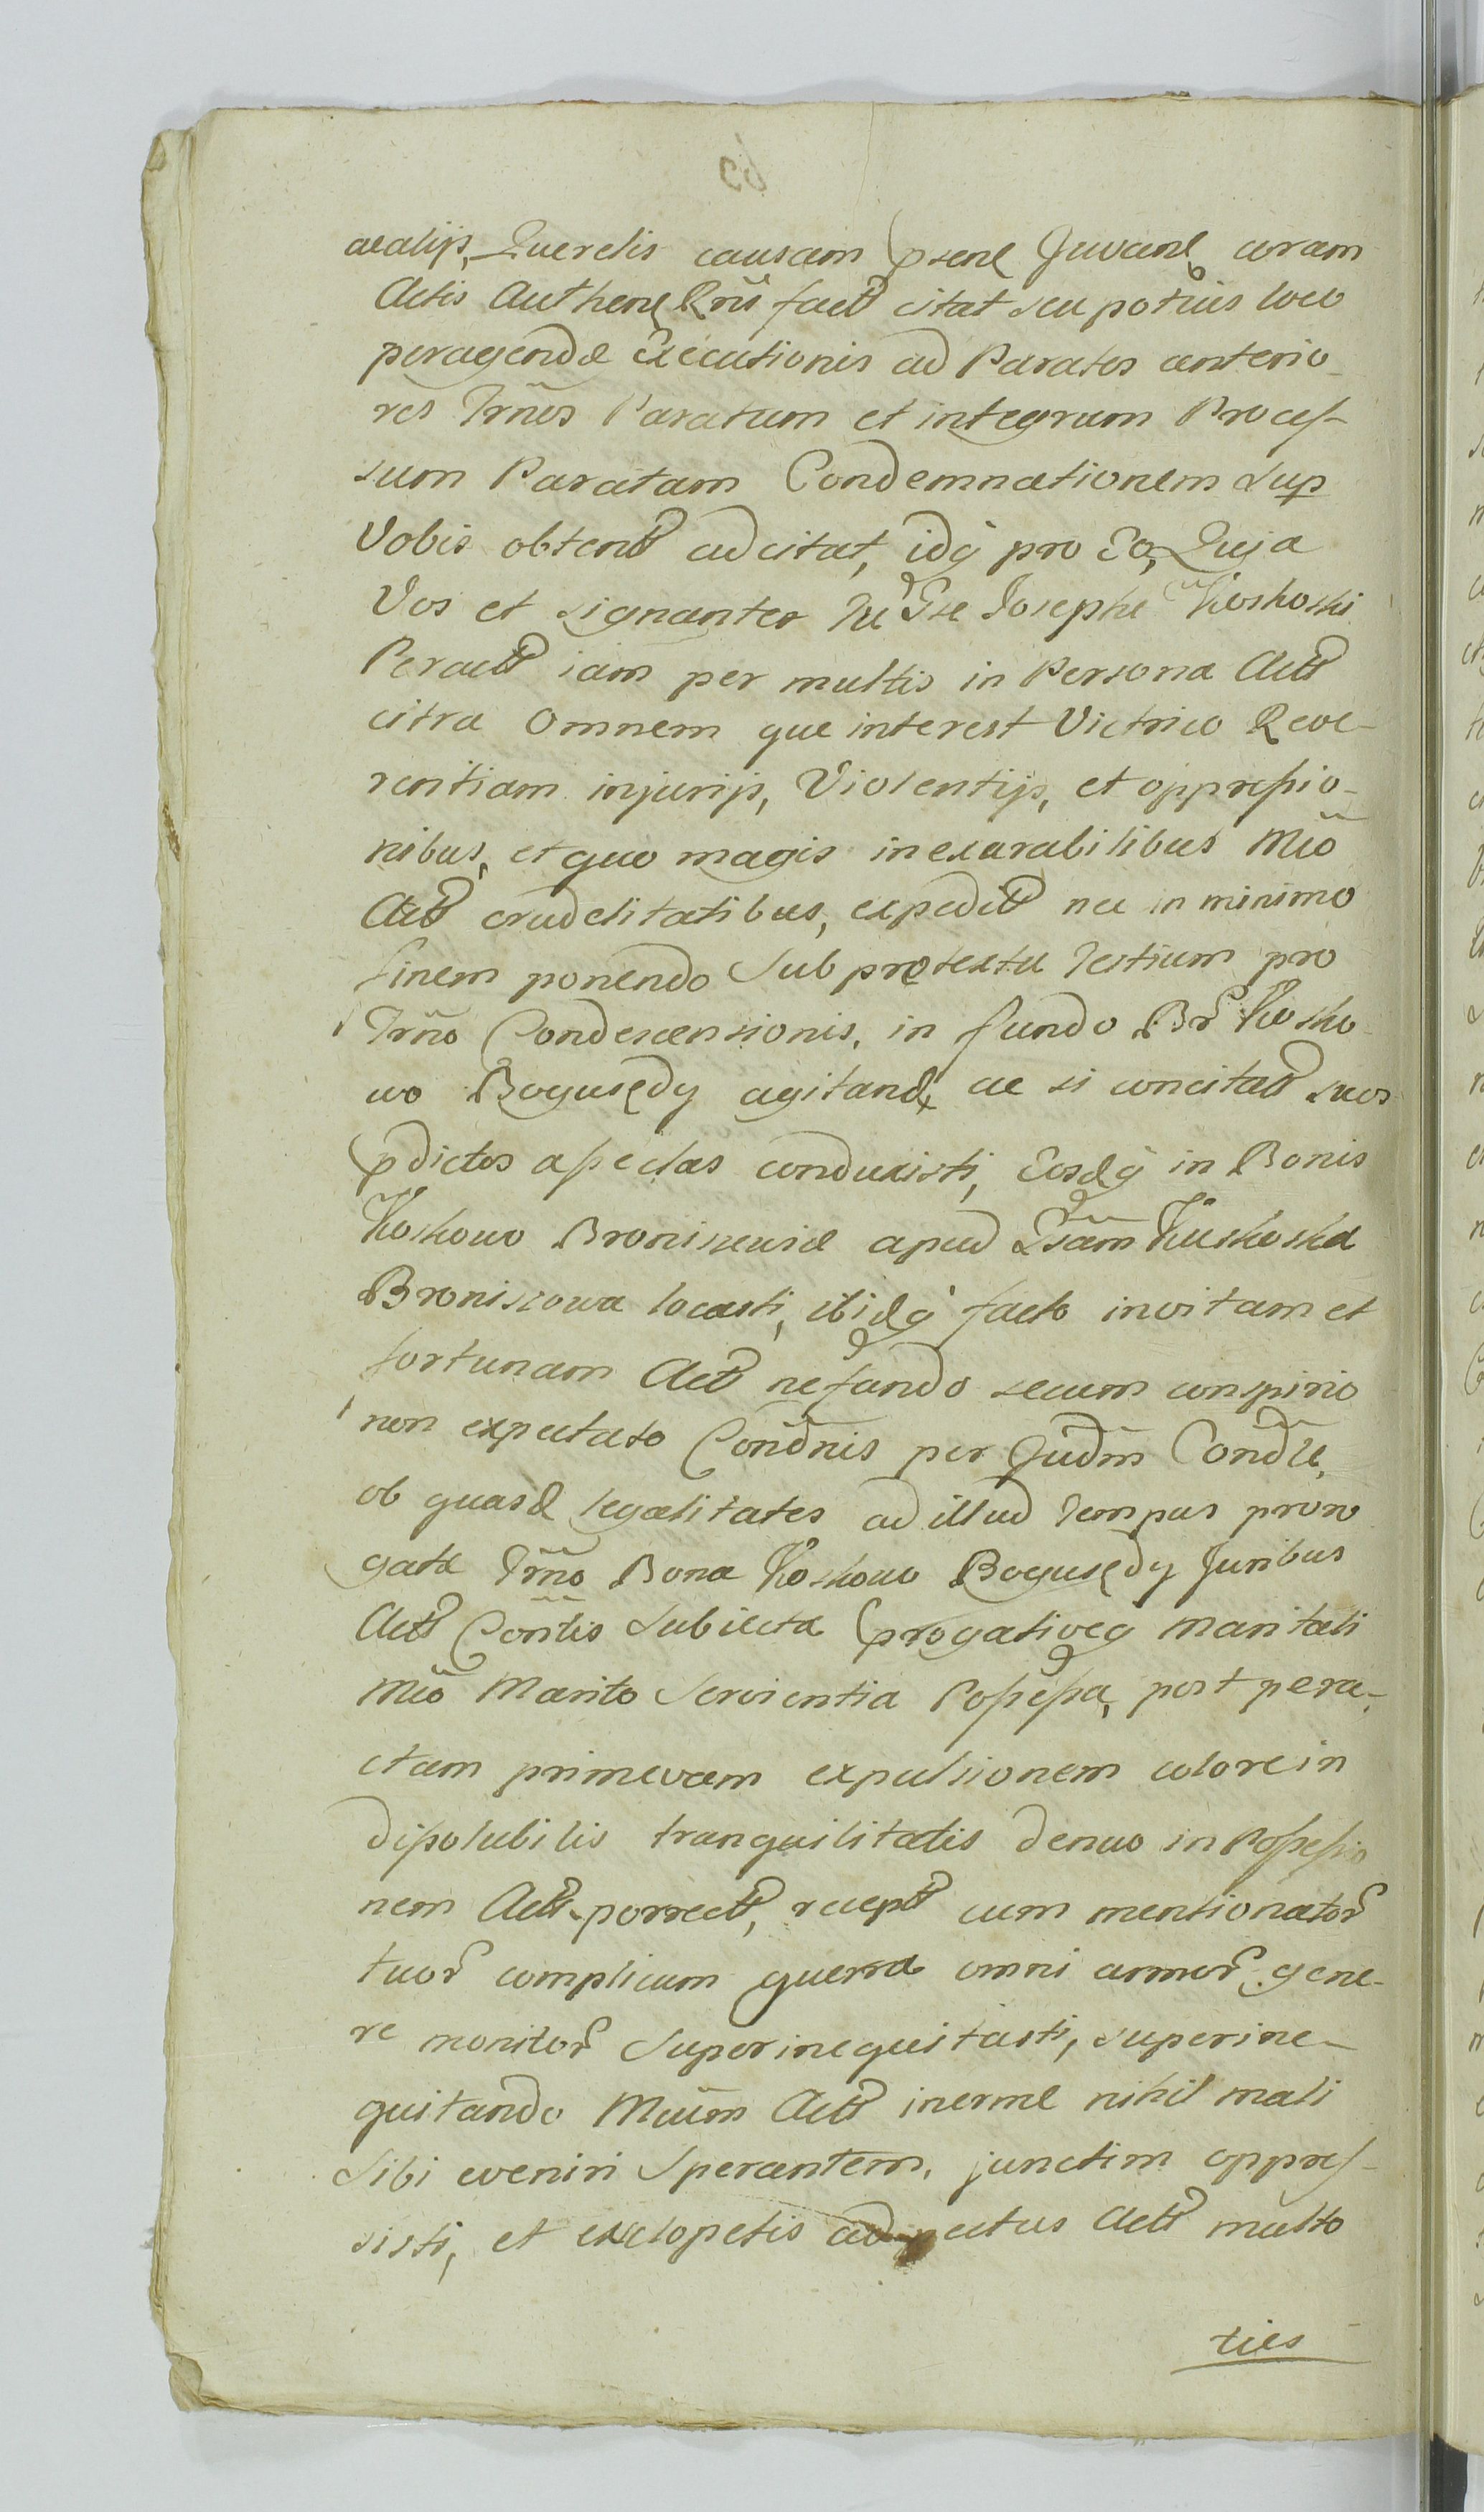 acalijs, Querelis causam psent Juvant coram
Actis Authent Rnū fact citat seu potius loco
peragendæ Executionis ad Paratos anterio-
res Trnōs Paratum et integrum Proces-
sum Paratam Condemnationem sup
Vobis obtent adcitat, idq pro Eo, Quia
Vos et signanter Tu Gse Josephe Koskoski
Peract iam per multis in Persona Act
citra Omnem que interest Victrico Reve-
rentiam injurijs, Violentijs, et oppressio-
nibus, et quo magis inexarabilibus Mtō
Act crudelitatibus, expedit nec in minimo
finem ponendo Sub prętextu Testium pro
Trnō Condescensionis, in fundo Br Kosko
wo Bogusędy agitand, ac si concitat suos
pdictos assedas conduxisti, Eosdq in Bonis
Koskowo Broniszewie apud Gsam Kuskoska
Broniszowa locasti, ibidq facto in vitam et
fortunam Act nefando secum conspirio
non expectato Condnis per Judm Condle,
ob quasd legalitates ad illud Tempus proro
gatæ Trnō Bona Koskowo Bogusędy Juribus
Act Contlis Subiecta progativeq Maritali
Mtō Marito Servientia Possessa, post pera-
ctam primevam expulsionem colore in
dissolubilis tranquilitatis denuo in Possessio
nem Act porrect, recept cum mentionator
tuor complicum guerra omni armor gene-
re monitor Superinequitasti, superine-
quitando Mtum Act inerme nihil mali
Sibi eveniri Sperantem, junctim oppres-
sisti, et exclopetis ad pectus Act multo
ties